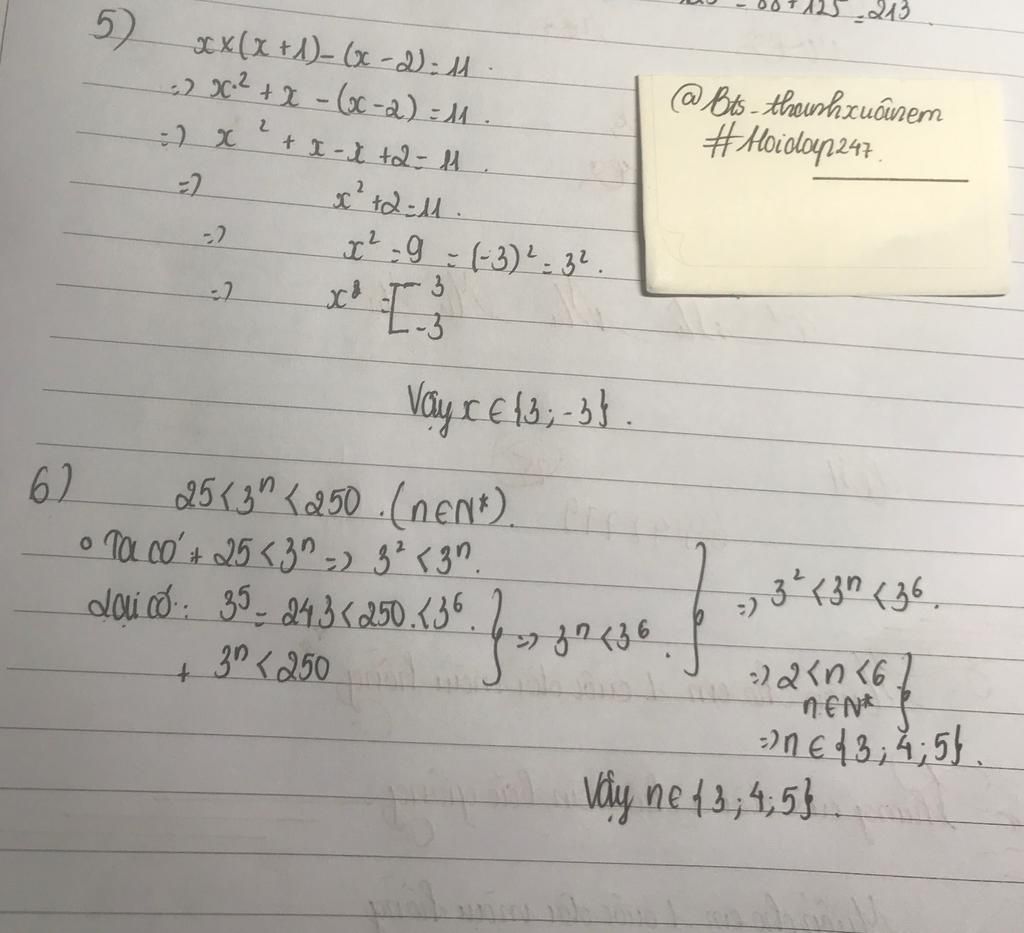 = 213
5) x×(x+1)-(x-2)=11.
=> x.² + x - (x-2) = 11.
=> x² + x - x + 2 = 11.
=> x² + 2 = 11.
=> x² = 9 = (-3)² = 3².
=> x = [ 3
-3
Vậy x ∈ {3; -3}.
@Bts_thanhxuânem
#Hoidap247.
6) 25 < 3ⁿ < 250. (n ∈ N*).
o Ta có + 25 < 3ⁿ => 3² < 3ⁿ.
Lại có: 3⁵ = 243 < 250 < 3⁶. } => 3ⁿ < 3⁶. } => 3² < 3ⁿ < 3⁶.
+ 3ⁿ < 250
=> 2 < n < 6 }
n ∈ N*
=> n ∈ {3; 4; 5}.
Vậy n ∈ {3; 4; 5}.